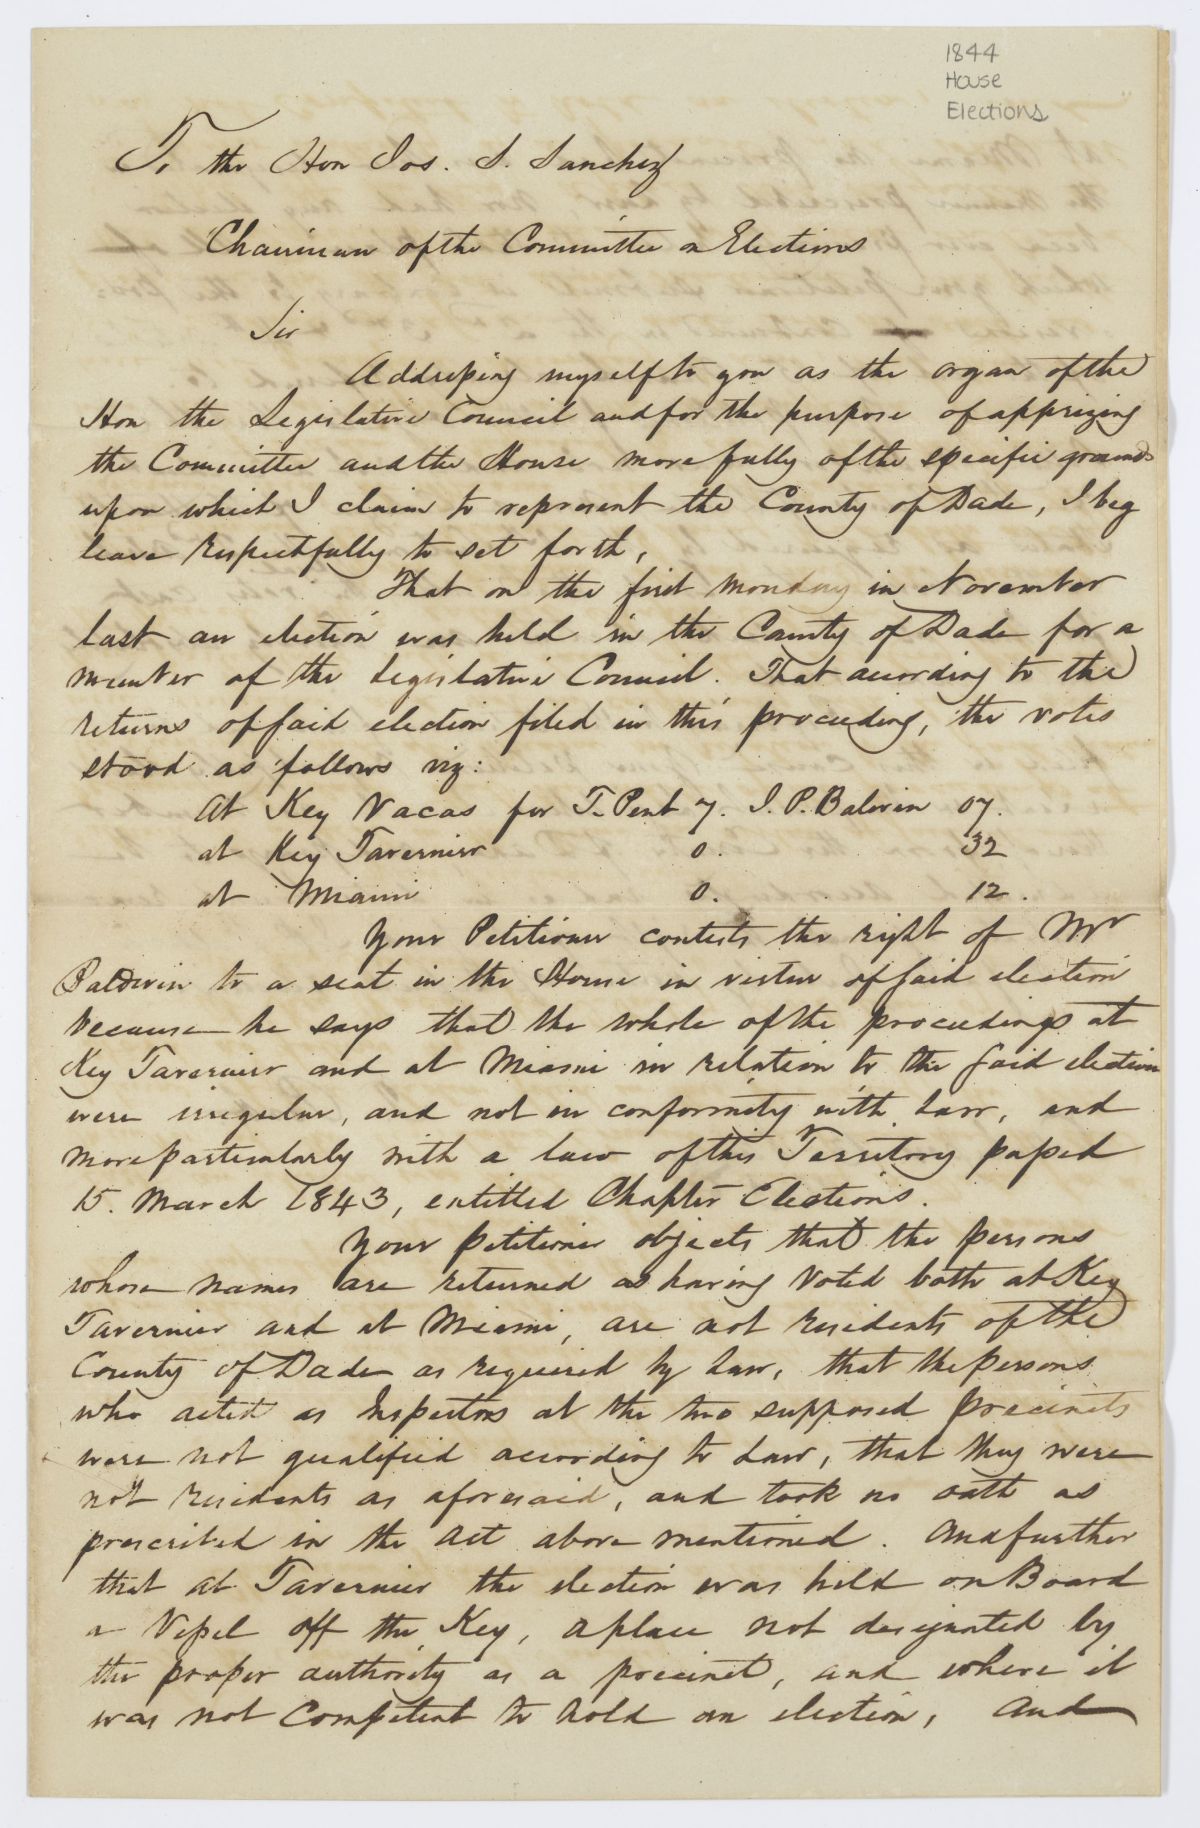 1844
House
Elections
To the Hon Jos. S. Sanchez
Chairman of the Committee on Elections
Sir
Addressing myself to you as the organ of the
Hon the Legislative Council and for the purpose of apprizing
the Committee and the House more fully of the specific grounds
upon which I claim to represent the County of Dade, I beg
leave respectfully to set forth,
That on the first Monday in November
last an election was held in the County of Dade for a
member of the Legislative Council. That according to the
returns of said election filed in this proceeding, the votes
stood as follows viz:
At Key Vacas for T. Pent 7. J. P. Baldwin 07.
at Key Tavernier 0. 32
at Miami 0. 12.
Your Petitioner contests the right of Mr
Baldwin to a seat in the House in virtue of said election
because he says that the whole of the proceedings at
Key Tavernier and at Miami in relation to the said election
were irregular, and not in conformity with Law, and
more particularly with a law of this Territory passed
15. March 1843, entitled Chapter Elections.
Your petitioner objects that the persons
whose names are returned as having voted both at Key
Tavernier and at Miami, are not residents of the
County of Dade as required by Law, that the persons
who acted as Inspectors at the two supposed precincts
were not qualified according to Law, that they were
not residents as aforesaid, and took no oath as
prescribed in the Act above mentioned. And further
that at Tavernier the election was held on Board
a Vessel off the Key, a place not designated by
the proper authority as a precinct, and where it
was not competent to hold an election, and